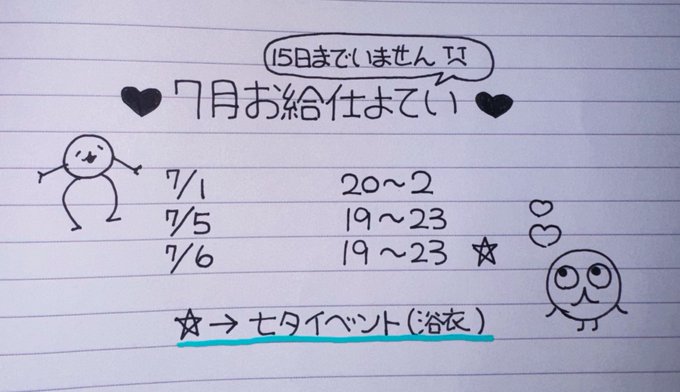 15日までいません
♥7月お給仕よてい♥
7/1 20~2
7/5 19~23
7/6 19~23 ☆
☆→七夕イベント(浴衣)